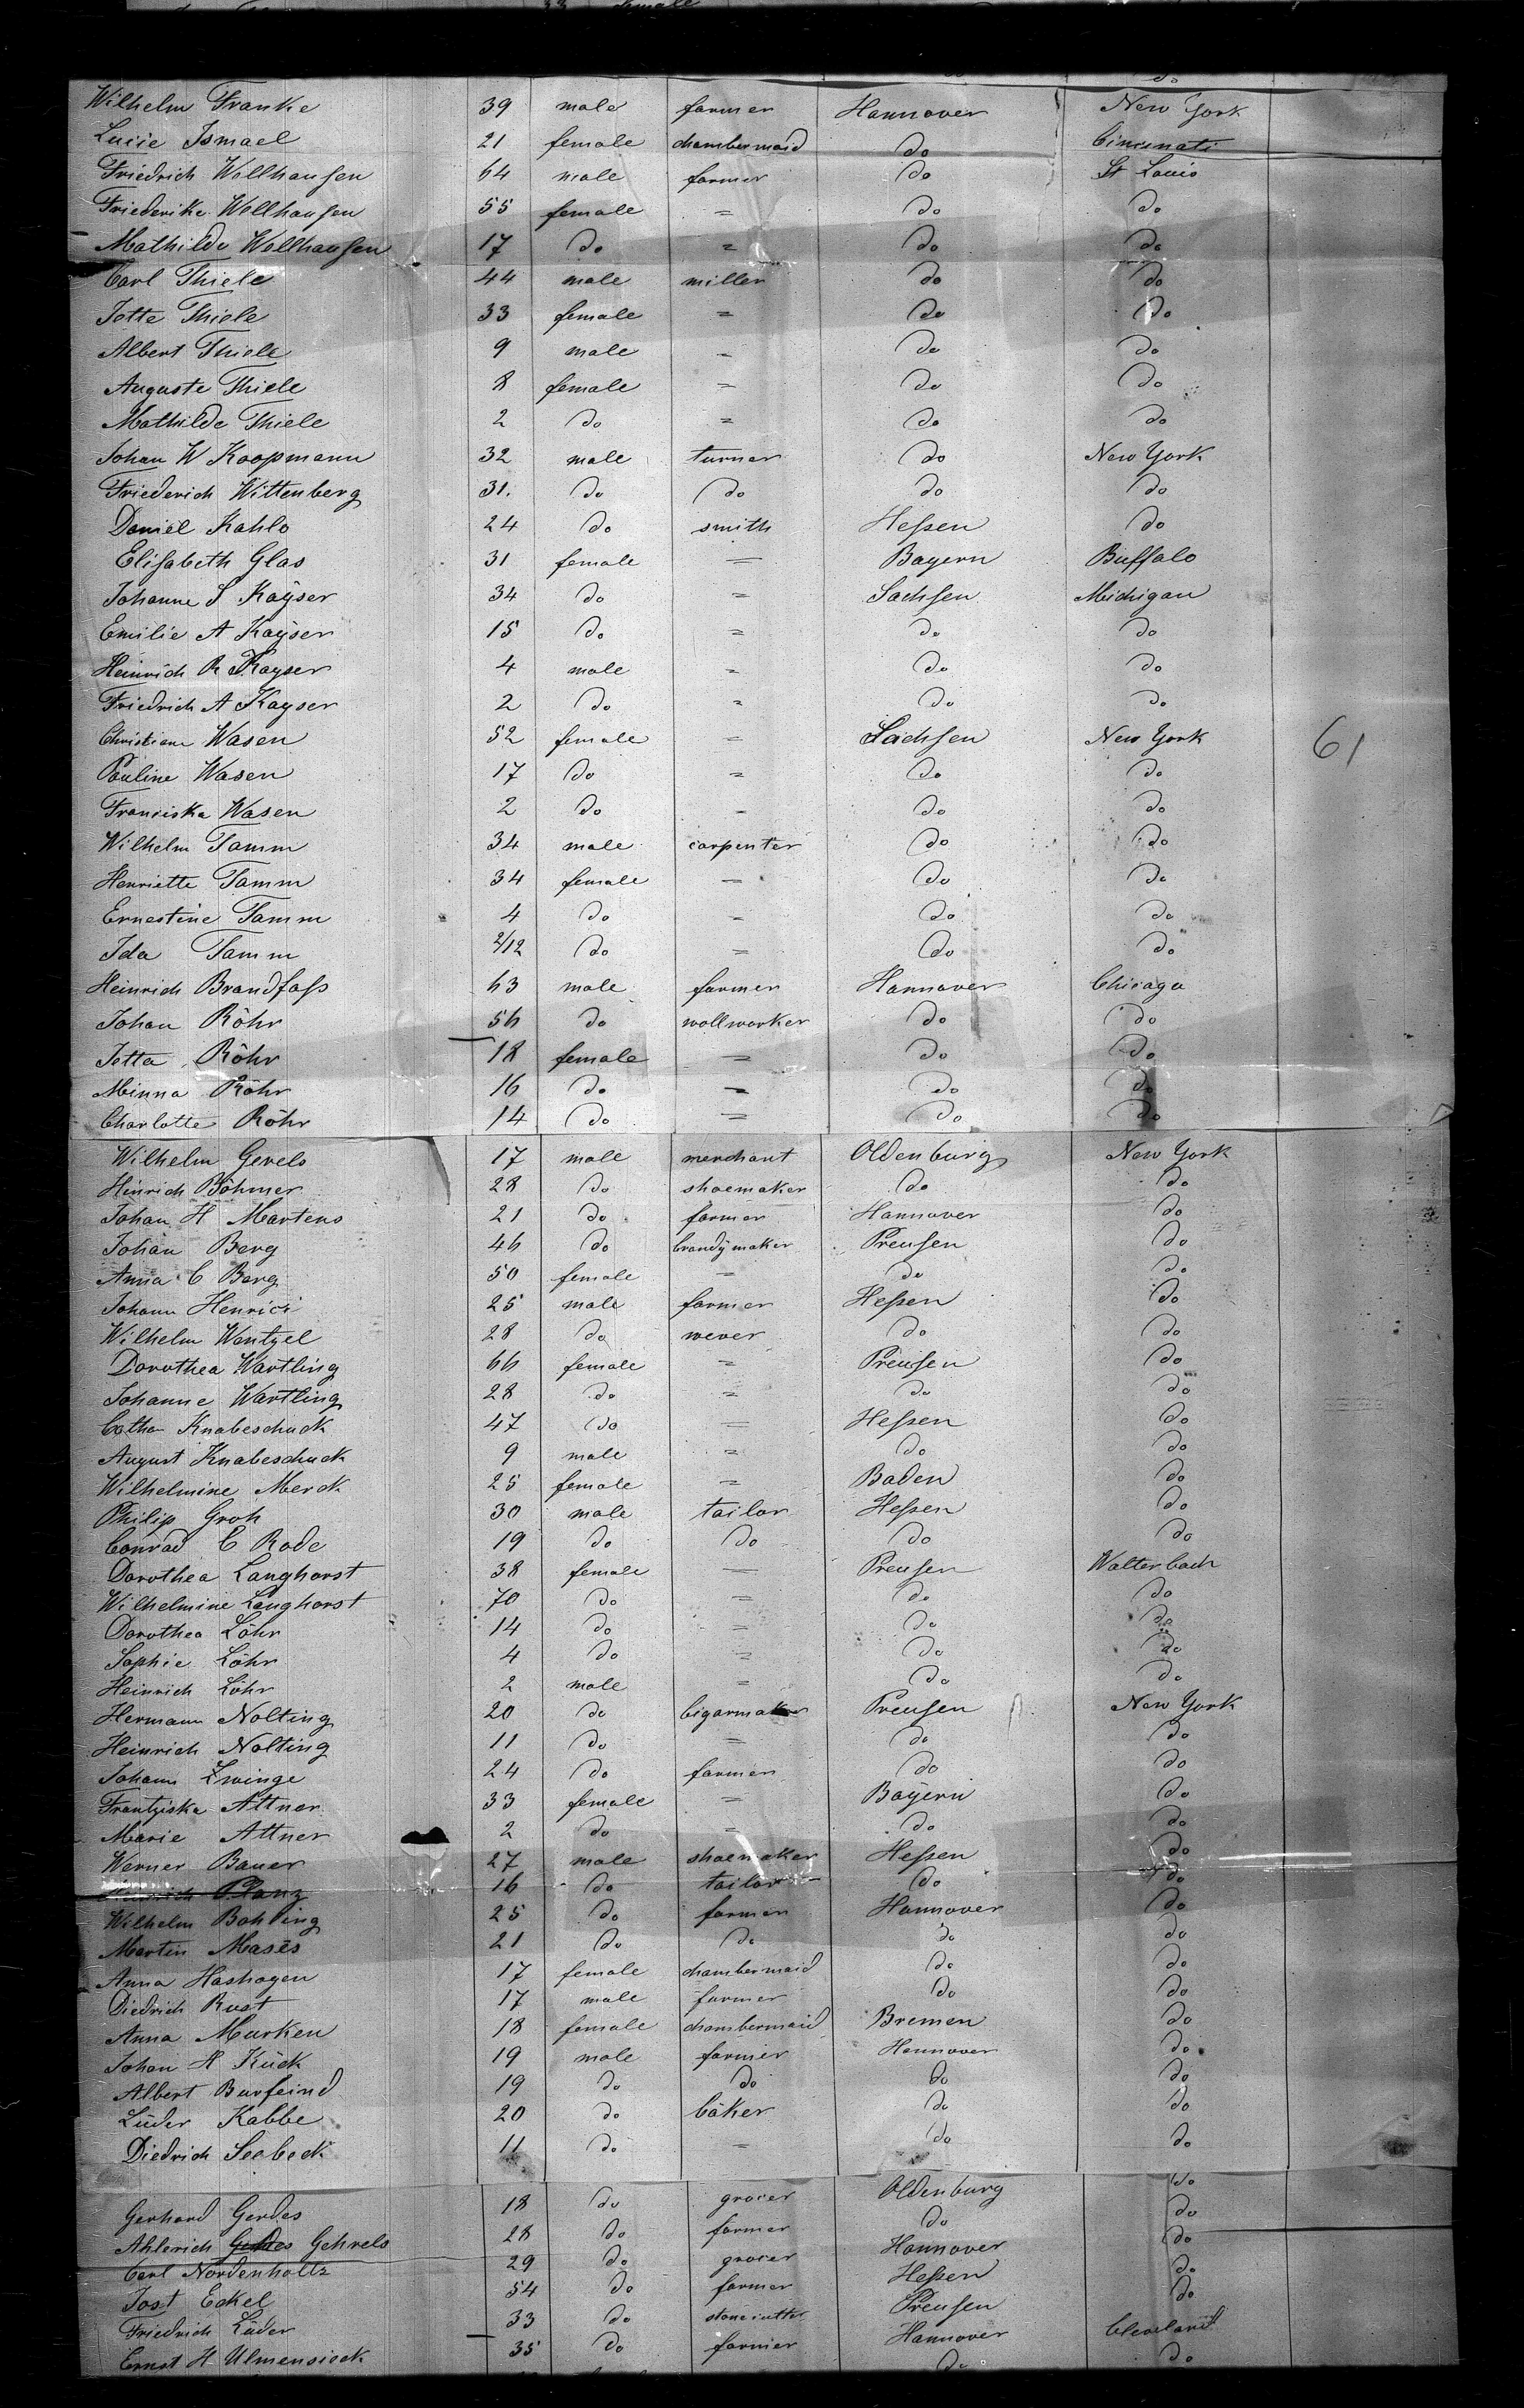 33 female
do do
Wilhelm Franke 39 male farmer Hannover New York
Lucie Ismael 21 female chambermaid do Cincinati
Friedrich Wellhausen 64 male farmer do St Louis
Friederike Wellhausen 55 female = do do
Mathilde Wellhausen 17 do = do do
Carl Thiele 44 male miller do do
Jette Thiele 33 female = do do
Albert Thiele 9 male = do do
Auguste Thiele 8 female = do do
Mathilde Thiele 2 do = do do
Johan W Koopmann 32 male turner do New York
Friederich Wittenberg 31. do do do do
Daniel Kahlo 24 do smith Hessen do
Elisabeth Glas 31 female = Bayern Buffalo
Johanne S Kayser 34 do = Sachsen Michigan
Emilie A Kayser 15 do = do do
Heinrich R Kayser 4 male = do do
Friedrich A Kayser 2 do = do do
Christiane Wasen 52 female = Sachsen New York 61
Pauline Wasen 17 do = do do
Franciska Wasen 2 do = do do
Wilhelm Tamm 34 male carpenter do do
Henriette Tamm 34 female = do do
Ernestine Tamm 4 do = do do
Ida Tamm 2/12 do = do do
Heinrich Brandfass 63 male farmer Hannover Chicago
Johan Röhr 56 do wollworker do do
Jetta Röhr 18 female = do do
Minna Röhr 16 do = do do
Charlotte Röhr 14 do = do do
Wilhelm Gevels 17 male merchant Oldenburg New York
Hinrich Böhmer 28 do shoemaker do do
Johan H Martens 21 do farmer Hannover do
Johan Berg 46 do brandymaker Preusen do
Anna C Berg 50 female = do do
Johann Henrici 25 male farmer Hessen do
Wilhelm Wentzel 28 do wever do do
Dorothea Wartling 66 female = Preusen do
Johanne Wartling 28 do = do do
Catha Knabeschuck 47 do = Hessen do
August Knabeschuck 9 male = do do
Wilhelmine Merck 25 female = Baden do
Philip Groh 30 male tailor Hessen do
Conrad C Rode 19 do do do do
Dorothea Langhorst 38 female = Preusen Walterbach
Wilhelmine Langhorst 70 do = do do
Dorothea Löhr 14 do = do do
Sophie Löhr 4 do = do do
Heinrich Löhr 2 male = do do
Hermann Nolting 20 do Cigarmaker Preusen New York
Heinrich Nolting 11 do = do do
Johann Zwinge 24 do farmer do do
Frantziska Attner 33 female = Bayern do
Marie Attner 2 do = do do
Werner Bauer 27 male shoemaker Hessen do
Planz 16 do tailor do do
Wilhelm Bohling 25 do farmer Hannover do
Martin Mases 21 do do do do
Anna Hashagen 17 female chambermaid do do
Diedrich Rust 17 male farmer do do
Anna Murken 18 female chambermaid Bremen do
Johan H Kück 19 male farmer Hannover do
Albert Burfeind 19 do do do do
Lüder Kabbe 20 do bäker do do
Diedrich Seebeck 11 do = do do
Gerhard Gerdes 18 do grocer Oldenburg do
Ahlerich Gerdes Gehrels 28 do farmer do do
Carl Nordenholtz 29 do grocer Hannover do
Jost Eckel 54 do farmer Hessen do
Friedrich Lüder 33 do stonecutter Preusen do
Ernst H Ulmensieck 35 do farmer Hannover Cleveland
do do